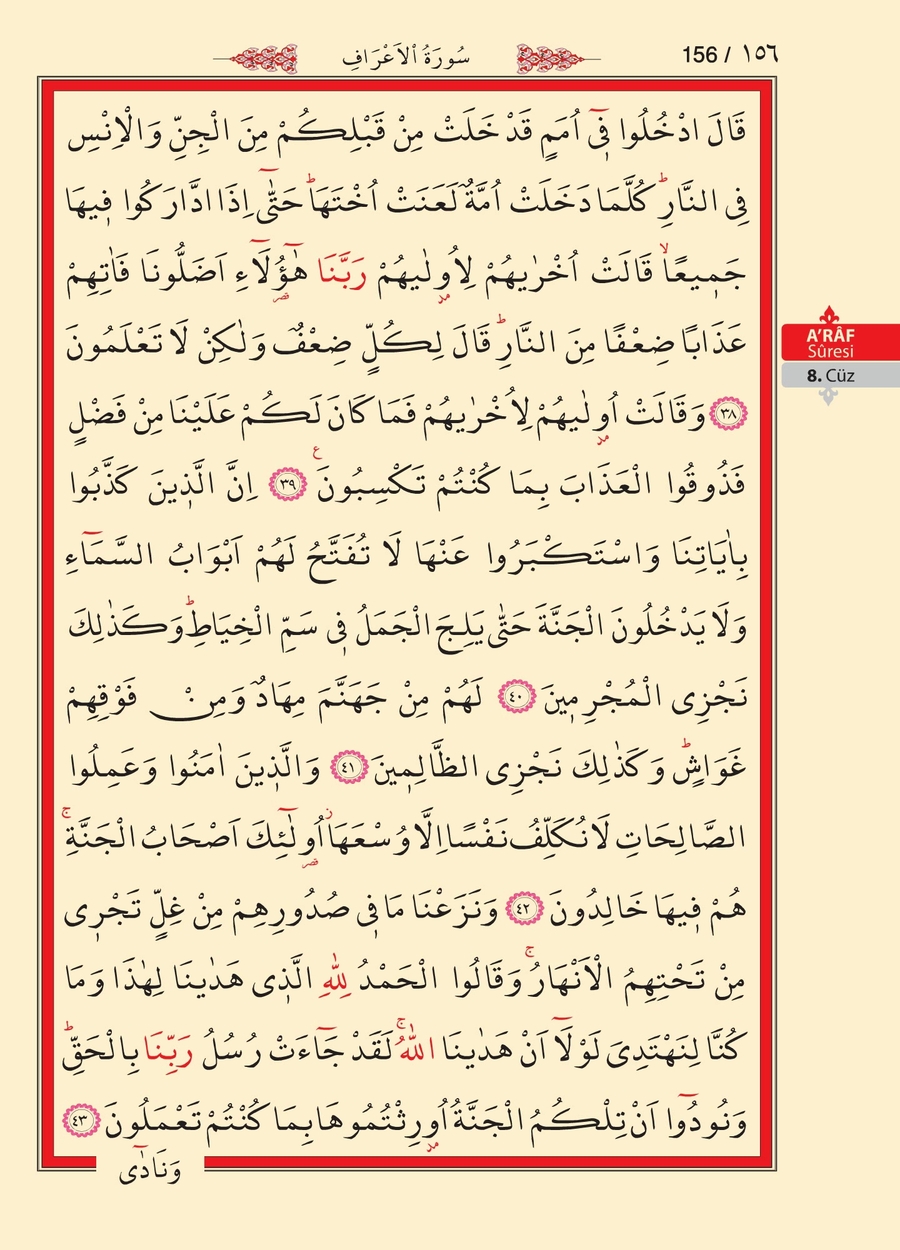 سُورَةُ الْاَعْرَافِ
156 / ١٥٦
قَالَ ادْخُلُوا فٖٓى اُمَمٍ قَدْ خَلَتْ مِنْ قَبْلِكُمْ مِنَ الْجِنِّ وَالْاِنْسِ
فِى النَّارِؕ كُلَّمَا دَخَلَتْ اُمَّةٌ لَعَنَتْ اُخْتَهَاؕ حَتّٰٓى اِذَا ادَّارَكُوا فٖيهَا
جَمٖيعًاۙ قَالَتْ اُخْرٰيهُمْ لِاُو۫لٰيهُمْ رَبَّنَا هٰٓؤُ۬لَٓاءِ اَضَلُّونَا فَاٰتِهِمْ
عَذَابًا ضِعْفًا مِنَ النَّارِؕ قَالَ لِكُلٍّ ضِعْفٌ وَلٰكِنْ لَا تَعْلَمُونَ
﴿٣٨﴾ وَقَالَتْ اُو۫لٰيهُمْ لِاُخْرٰيهُمْ فَمَا كَانَ لَكُمْ عَلَيْنَا مِنْ فَضْلٍ
فَذُوقُوا الْعَذَابَ بِمَا كُنْتُمْ تَكْسِبُونَ ع ﴿٣٩﴾ اِنَّ الَّذٖينَ كَذَّبُوا
بِاٰيَاتِنَا وَاسْتَكْبَرُوا عَنْهَا لَا تُفَتَّحُ لَهُمْ اَبْوَابُ السَّمَٓاءِ
وَلَا يَدْخُلُونَ الْجَنَّةَ حَتّٰى يَلِجَ الْجَمَلُ فٖى سَمِّ الْخِيَاطِؕ وَكَذٰلِكَ
نَجْزِى الْمُجْرِمٖينَ ﴿٤٠﴾ لَهُمْ مِنْ جَهَنَّمَ مِهَادٌ وَمِنْ فَوْقِهِمْ
غَوَاشٍؕ وَكَذٰلِكَ نَجْزِى الظَّالِمٖينَ ﴿٤١﴾ وَالَّذٖينَ اٰمَنُوا وَعَمِلُوا
الصَّالِحَاتِ لَا نُكَلِّفُ نَفْسًا اِلَّا وُسْعَهَاؗ اُو۬لٰٓئِكَ اَصْحَابُ الْجَنَّةِۚ
هُمْ فٖيهَا خَالِدُونَ ﴿٤٢﴾ وَنَزَعْنَا مَا فٖى صُدُورِهِمْ مِنْ غِلٍّ تَجْرٖى
مِنْ تَحْتِهِمُ الْاَنْهَارُۚ وَقَالُوا الْحَمْدُ لِلّٰهِ الَّذٖى هَدٰينَا لِهٰذَا وَمَا
كُنَّا لِنَهْتَدِىَ لَوْلَٓا اَنْ هَدٰينَا اللّٰهُۚ لَقَدْ جَٓاءَتْ رُسُلُ رَبِّنَا بِالْحَقِّؕ
وَنُودُٓوا اَنْ تِلْكُمُ الْجَنَّةُ اُو۫رِثْتُمُوهَا بِمَا كُنْتُمْ تَعْمَلُونَ ﴿٤٣﴾
وَنَادٰٓى
A'RÂF
Sûresi
8. Cüz